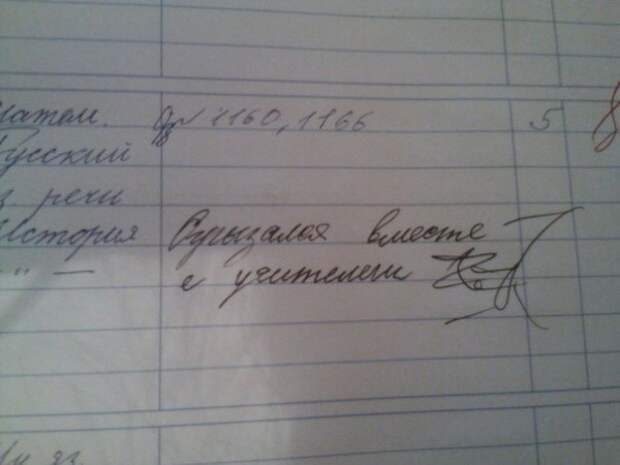 матем. № 1160, 1166 5
Русский
речи
История Огрызался вместе
" — с учителем
яз